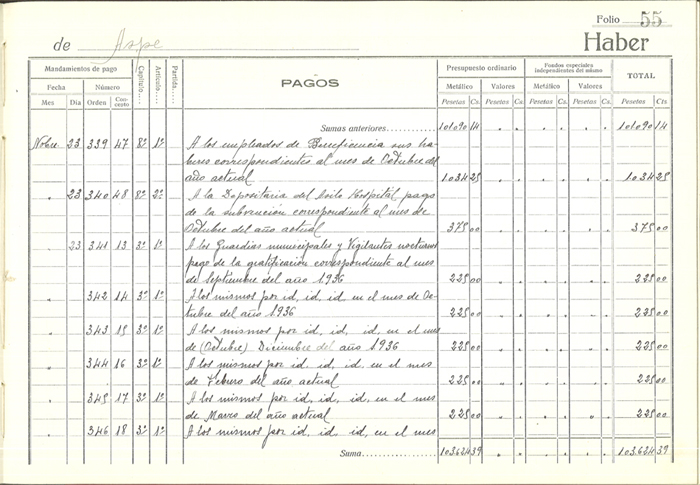 Folio 55
de Aspe Haber
Mandamientos de pago
Fecha Número
Mes Dia Orden Con-cepto Capítulo Artículo Partida
PAGOS
Presupuesto ordinario
Metálico Valores
Pesetas Cs. Pesetas Cs.
Fondos especiales independientes del mismo
Metálico Valores
Pesetas Cs. Pesetas Cs.
TOTAL
Pesetas Cts
Sumas anteriores 101.090 14 101.090 14
Nobre. 23 339 47 8º 1º A los empleados de Beneficencia sus ha-
beres correspondientes al mes de Octubre del
año actual 1.034 25 1.034 25
" 23 340 48 8º 2º A la Depositaria del Asilo Hospital pago
de la subvencion correspondiente al mes de
Octubre del año actual 375 00 375 00
" 23 341 13 3º 1º A los Guardias municipales y Vigilantes nocturnos
pago de la gratificación correspondiente al mes
de Septiembre del año 1936 225 00 225 00
" " 342 14 3º 1º A los mismos por id, id, id en el mes de Oc-
tubre del año 1936 225 00 225 00
" " 343 15 3º 1º A los mismos por id, id, id, en el mes
de (Octubre) Diciembre del año 1936 225 00 225 00
" " 344 16 3º 1º A los mismos por id, id, id, en el mes
de Febrero del año actual 225 00 225 00
" " 345 17 3º 1º A los mismos por id, id, id, en el mes
de Marzo del año actual 225 00 225 00
" " 346 18 3º 1º A los mismos por id, id, id, en el mes
Suma 103.624 39 103.624 39